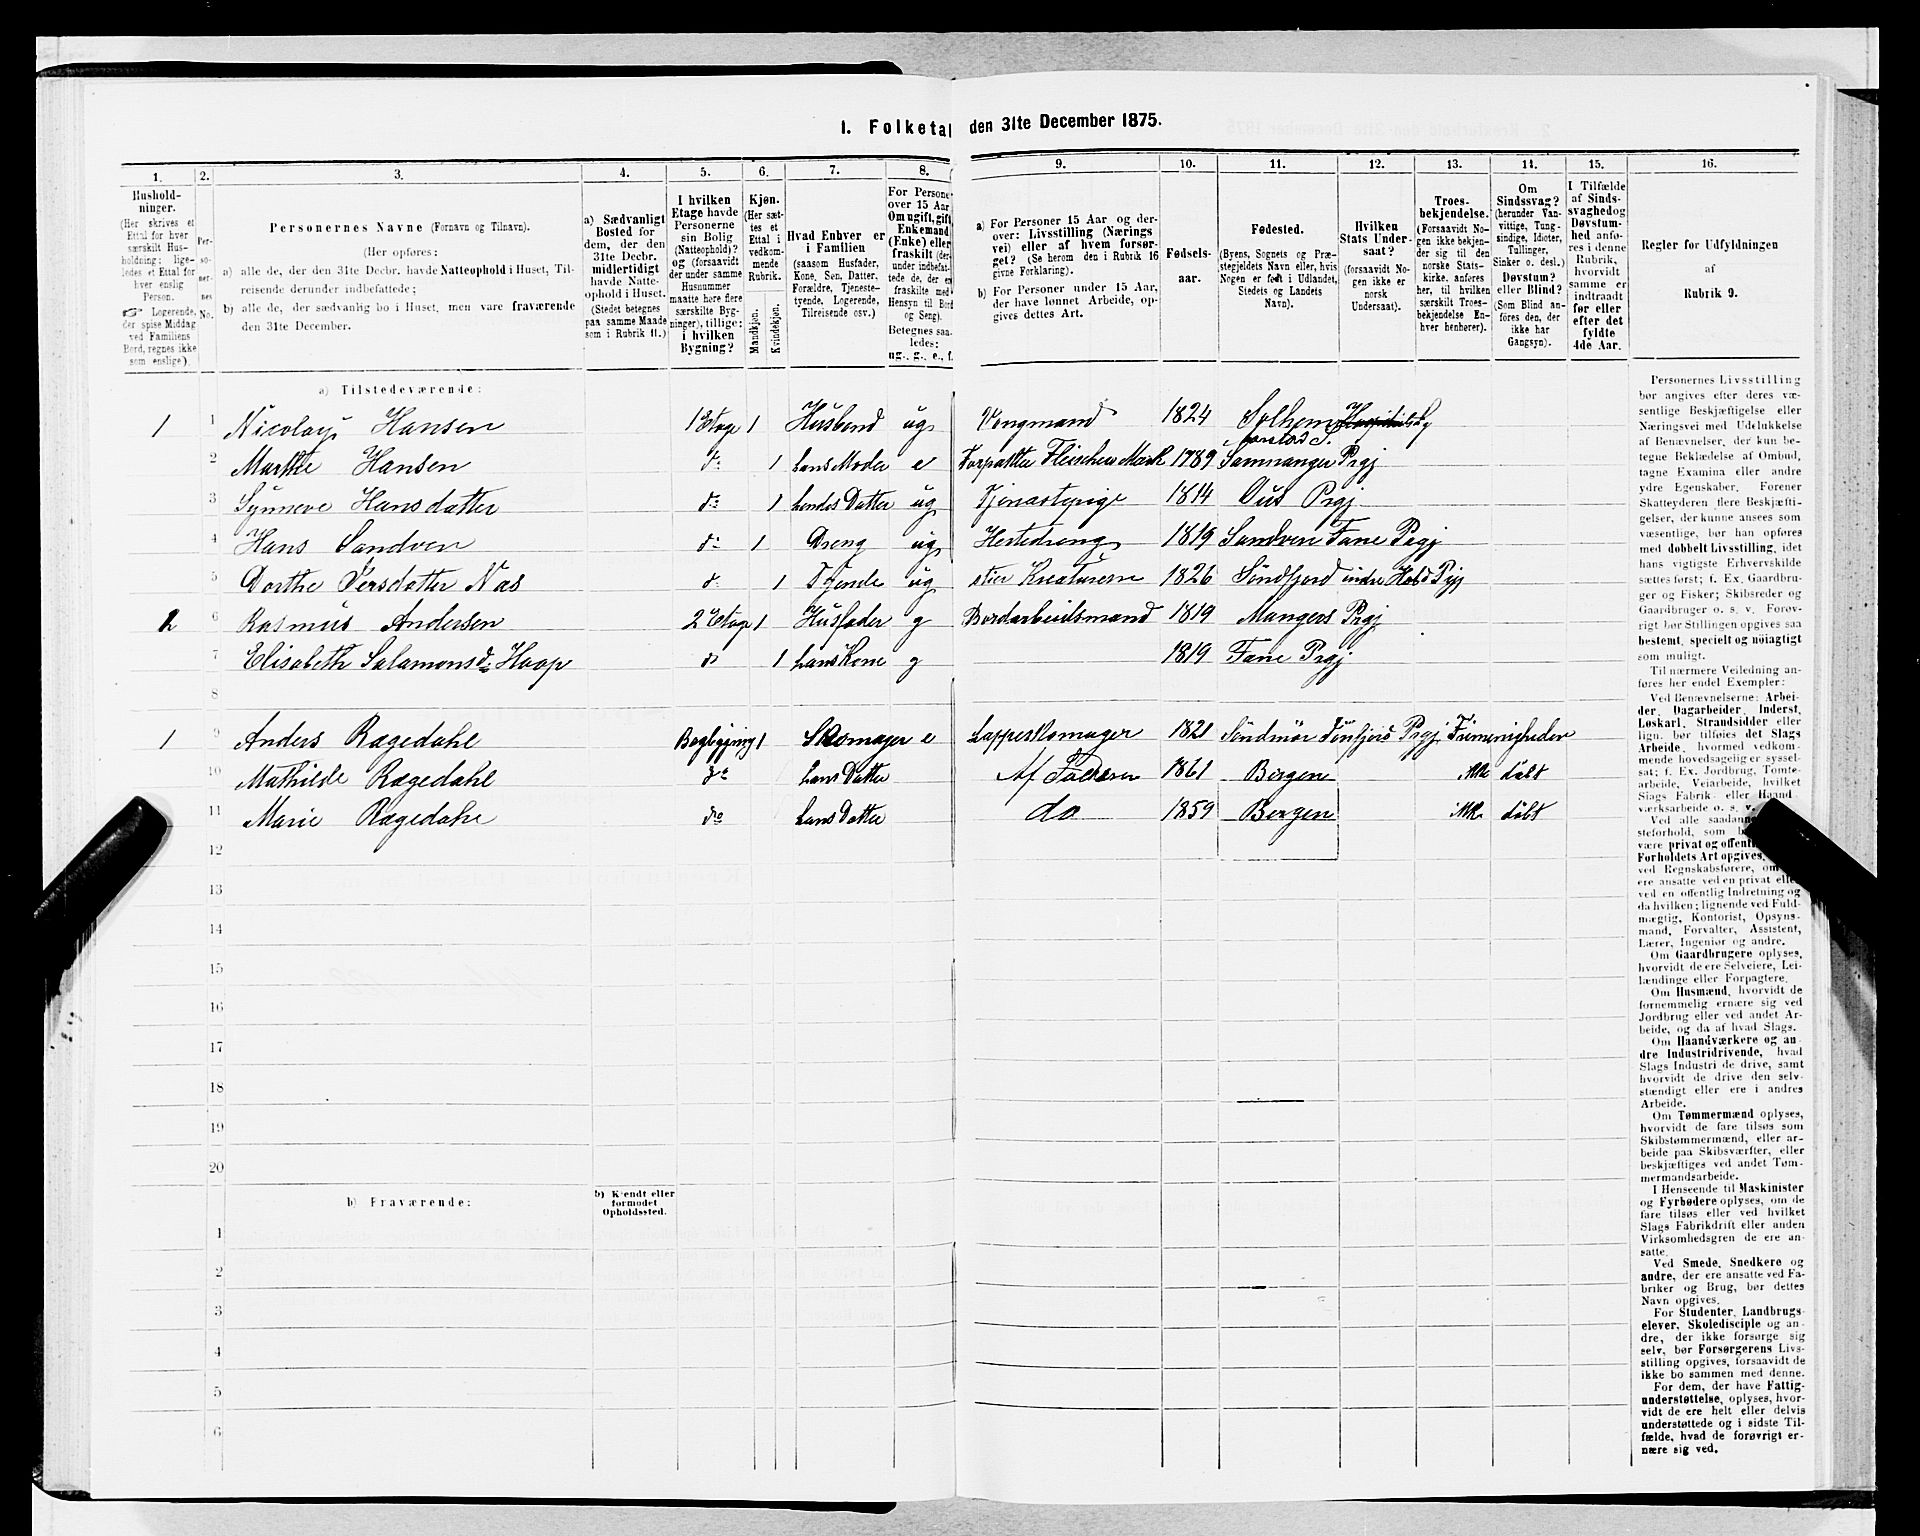 1. Folketal den 31te December 1875.
1. 2. 3. 4. 5. 6. 7. 8. 9. 10. 11. 12. 13. 14. 15. 16.
Hushold-
ninger.
(Her skrives et
Ettal for hver
særskilt Hus-
holdning; lige-
ledes et Ettal for
hver enslig
Person.
☞ Logerende,
der spise Middag
ved Familiens
Bord, regnes ikke
som enslige).
Per-
so-
ner-
nes
No.
Personernes Navne (Fornavn og Tilnavn).
(Her opføres:
a) alle de, der den 31te Decbr. havde Natteophold i Huset, Til-
reisende derunder indbefattede;
b) alle de, der sædvanlig bo i Huset, men vare fraværende
den 31te December.
a) Sædvanligt
Bosted for
dem, der den
31te Decbr.
midlertidigt
havde Natte-
ophold i Huset.
(Stedet betegnes
paa samme Maade
som i Rubrik 11.)
I hvilken
Etage havde
Personerne
sin Bolig
(Natteophold)?
og (forsaavidt
der under samme
Husnummer
maatte høre flere
særskilte Byg-
ninger), tillige:
i hvilken
Bygning?
Kjøn.
(Her sæt-
tes et
Ettal i
vedkom-
mende
Rubrik.
Mandkjøn.
Kvindekjøn.
Hvad Enhver er
i Familien
(saasom Husfader,
Kone, Søn, Datter,
Forældre, Tjeneste-
tyende, Logerende,
Tilreisende osv.)
For Persone
over 15 Aar
Om ugift, gift
Enkemand
(Enke) eller
fraskilt (der-
under indbefat-
tede de, der er
fraskilte med
Hensyn til Bord
og Seng).
Betegnes saa-
ledes:
ug., g., e., f.
a) For Personer 15 Aar og der-
over: Livsstilling (Nærings-
vei) eller af hvem forsør-
get? (Se herom den i Rubrik 16
givne Forklaring).
b) For Personer under 15 Aar,
der have lønnet Arbeide, op-
gives dettes Art.
Fødsels-
aar.
Fødested.
(Byens, Sognets og Præ-
stegjeldets Navn eller, hvis
Nogen er født i Udlandet,
Stedets og Landets
Navn).
Hvilken
Stats Under-
saat?
(forsaavidt No-
gen ikke er
norsk
Undersaat).
Troes-
bekjendelse.
(Forsaavidt No-
gen ikke bekjen-
der sig til den
norske Stats-
kirke, anføres
her, til hvilken
særskilt Troes-
bekjendelse En-
hver henhører).
Om
Sindssvag?
(herunder Van-
vittige, Tung-
sindige, Idioter,
Tullinger,
Sinker o. desl.)
Døvstum?
eller Blind?
(Som Blind an-
føres den, der
ikke har
Gangsyn).
I Tilfælde
af Sinds-
svaghed og
Døvstum-
hed anfø-
res i denne
Rubrik,
hvorvidt
samme er
indtraadt
før eller
efter det
fyldte
4de Aar.
Regler for Udfyldningen
af
Rubrik 9.
a) Tilstedeværende:
1 1 Nicolay Hansen 1 Etage 1 Husbond ug 1824
2 Marthe Hansen do 1 hans Moder e 1789 Samnanger Prgj
3 Synneve Hansdatter do 1 Datter ug 1814 Ous Prgj
4 Hans Sandven do 1 Dreng ug Hestedreng 1819 Sandven Fane Prgj
5 Dorthe Næs do 1 Tjende ug 1826 Søndfjord indre Prgj
2 6 Rasmus Andersen 2 Etage 1 Husfader g Bordarbeidsmand 1819 Mangers Prgj
7 Elisabeth Salamonsdr Haap do 1 hans Kone g 1819 Fane Prgj
8
1 9 Anders Rægedahl Bagbygning 1 Skomager e Lappeskomager 1821 Søndmør Prgj
10 Mathilde Rægedahl do hans Datter Af Faderen 1861 Bergen ikke døbt
11 Marie Rægedahl do hans Datter do 1859 Bergen ikke døbt
12
13
14
15
16
17
18
19
20
b) Fraværende:
b) Kjendt eller
formodet
Opholdssted.
1
2
3
4
5
6
Personernes Livsstilling
bør angives efter deres væ-
sentlige Beskjæftigelse eller
Næringsvei med Udelukkelse
af Benævnelser, der kun be-
tegne Beklædelse af Ombud,
tagne Examina eller andre
ydre Egenskaber. Forener
Skatteyderen flere Beskjæfti-
gelser, der kunne ansees som
væsentlige, bør han opføres
med dobbelt Livsstilling, idet
hans vigtigste Erhvervskilde
sættes først; f. Ex. Gaardbru-
ger og Fisker; Skibsreder og
Gaardbruger o. s. v. Forøv-
rigt bør Stillingen opgives saa
bestemt, specielt og nöiagtigt
som muligt.
Til nærmere Veiledning an-
føres her endel Exempler:
Ved Benævnelserne: Arbei-
der, Dagarbeider, Inderst,
Løskarl, Strandsidder eller
lign. bør tilføies det Slags
Arbeide, hvormed vedkom-
mende hovedsagelig er syssel-
sat; f. Ex. Jordbrug, Tomte-
arbeide, Veiarbeide, hvilket
Slags Fabrik- eller Haand-
værksarbeide o. s. v.
Ved alle saadanne
steforhold, som
være privat og offent
Forholdets Art opgives,
ved Regnskabsførere, om
ere ansatte ved en privat elle
ved en offentlig Indretning og
da hvilken; lignende ved Fuld-
mægtig, Kontorist, Opsyns-
mand, Forvalter, Assistent,
Lærer, Ingeniør og andre.
Om Gaardbrugere oplyses,
hvorvidt de ere Selveiere, Lei-
lændinge eller Forpagtere.
Om Husmænd, hvorvidt de
fornemmelig ernære sig ved
Jordbrug eller ved andet Ar-
beide, og da af hvad Slags.
Om Haandværkere og an-
dre Industridrivende, hvad
Slags Industri de drive, samt
hvorvidt de drive den selv-
stændigt eller ere i andres
Arbeide.
Om Tømmermænd oplyses,
hvorvidt de fare tilsøs som
Skibstømmermænd, eller ar-
beide paa Skibsværfter, eller
beskjæftiges ved andet Tøm-
mermandsarbeide.
I Henseende til Maskinister
og Fyrbødere oplyses, om de
fare tilsøs eller ved hvilket
Slags Fabrikdrift eller anden
Virksomhedsgren de ere an-
satte.
Ved Smede, Snedkere og
andre, der ere ansatte ved Fa-
briker og Brug, bør dettes
Navn opgives.
For Studenter, Landbrugs-
elever, Skoledisciple og an-
dre, der ikke forsørge sig
selv, bør Forsørgerens Livs-
stilling opgives, forsaavidt de
ikke bo sammen med denne.
For dem, der have Fattig-
understøttelse, oplyses, hvor-
vidt de ere helt eller delvis
understøttede og i sidste Til-
fælde, hvad de forøvrigt er-
nære sig ved.